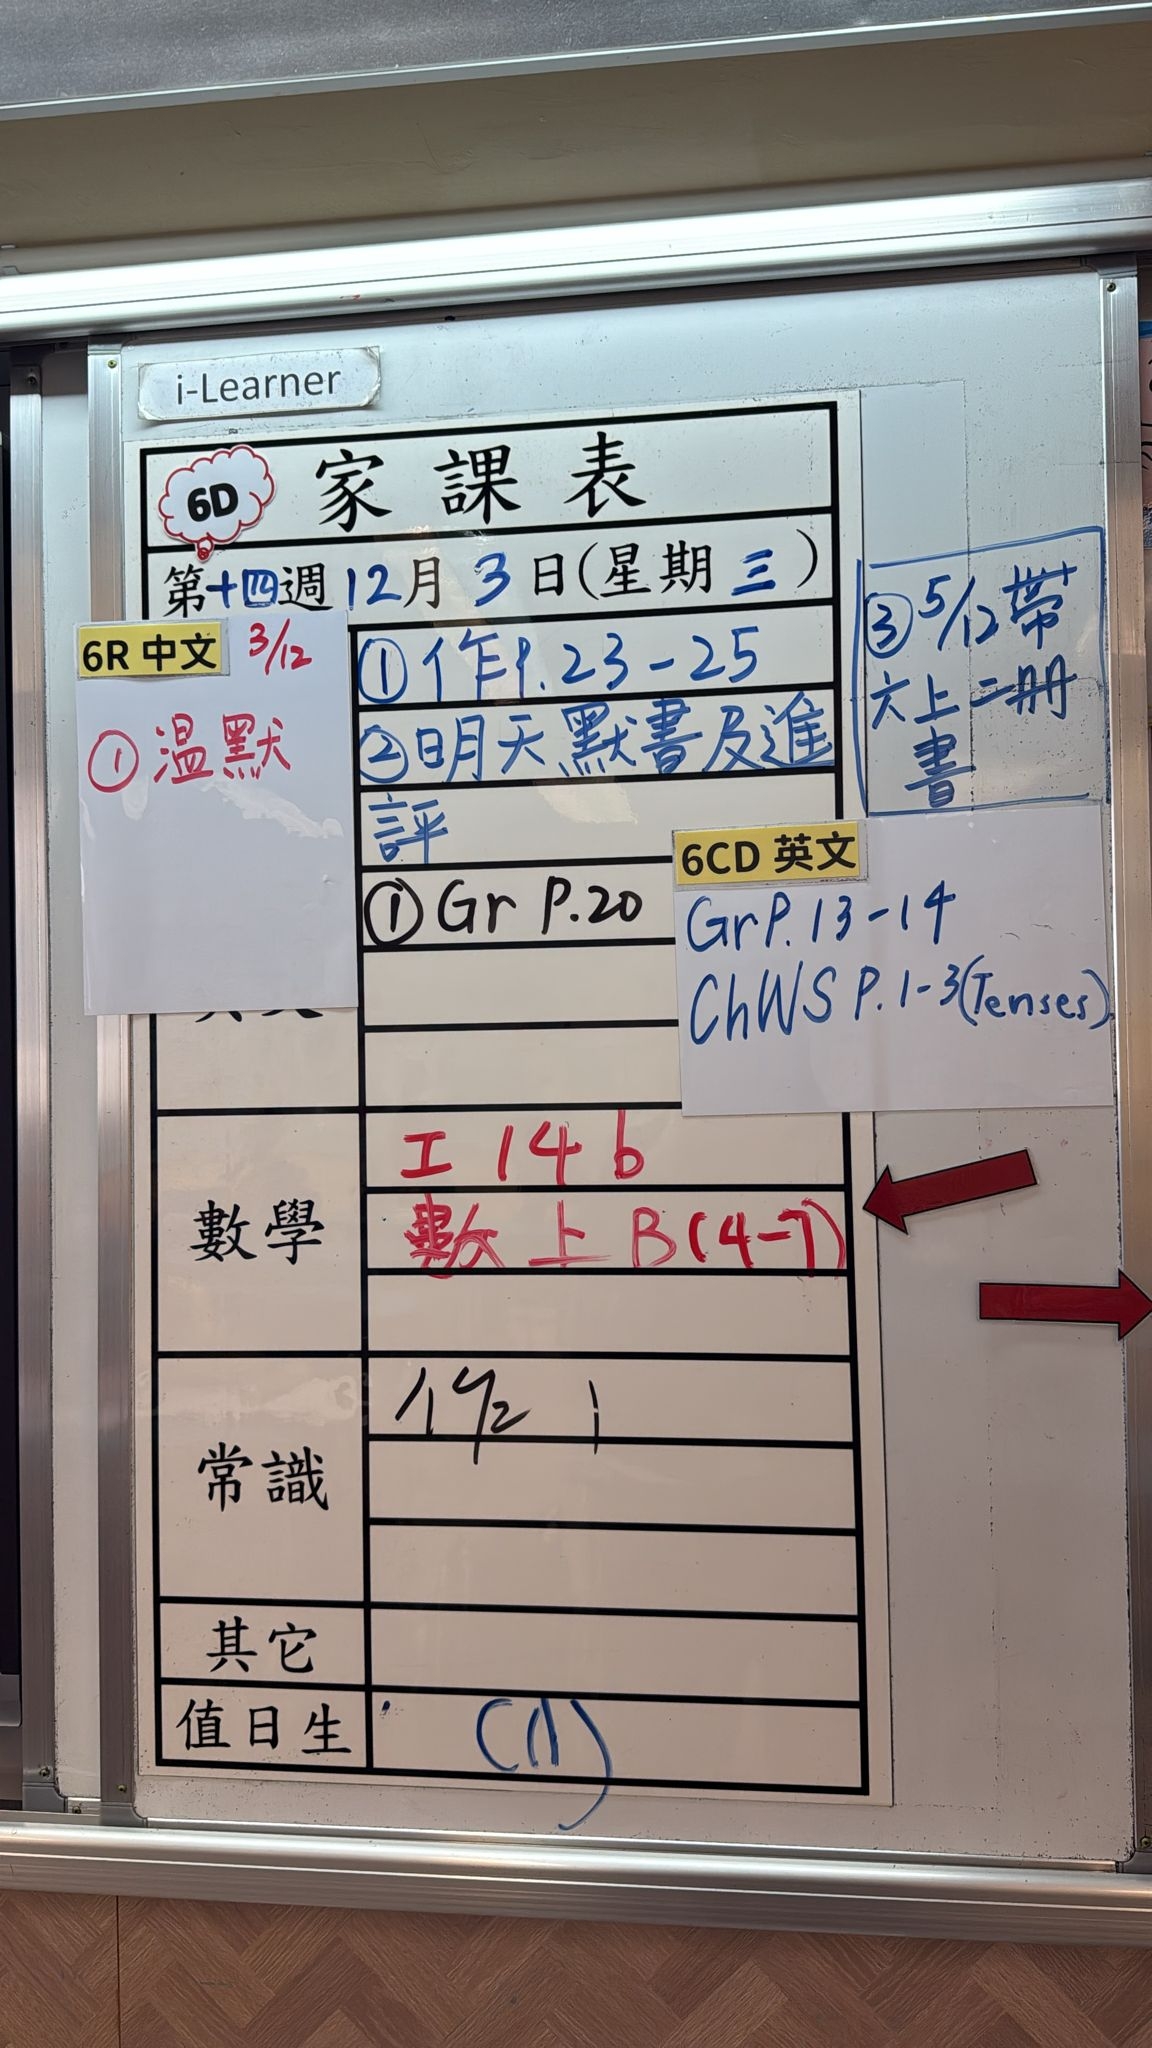 i-Learner
6D 家課表
第十四週 12月 3日(星期三)
6R 中文 3/12
① 溫默
① 作P.23-25
② 明天默書及進
評
③ 5/12 帶
六上二冊
書
① Gr P.20
6CD 英文
Gr P. 13-14
ChWS P. 1-3 (Tenses)
數學
工 14 b
數上 B(4-7)
常識
作
其它
值日生